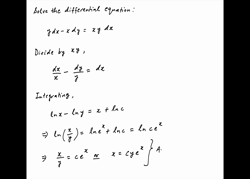 Solve the differential equation:
y dx - x dy = xy dx
Divide by xy,
dx/x - dy/y = dx
Integrating,
lnx - lny = x + lnc
⇒ ln(x/y) = lne^x + lnc = lnce^x
⇒ x/y = ce^x or x = cye^x } A.